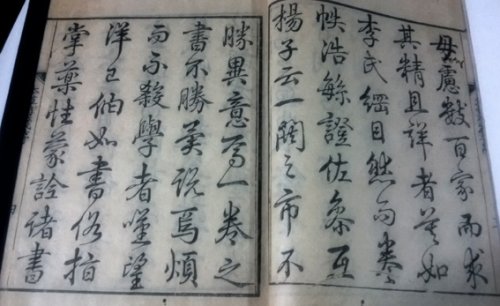 毋慮數百家而求
其精且詳者莫如
李氏綱目然而卷
帙浩緐證佐參互
楊子云一閧之市不
勝異意焉一卷之
書不勝異說焉煩
而不殺學者嘆望
洋已他如書俗指
掌藥性蒙詮諸書